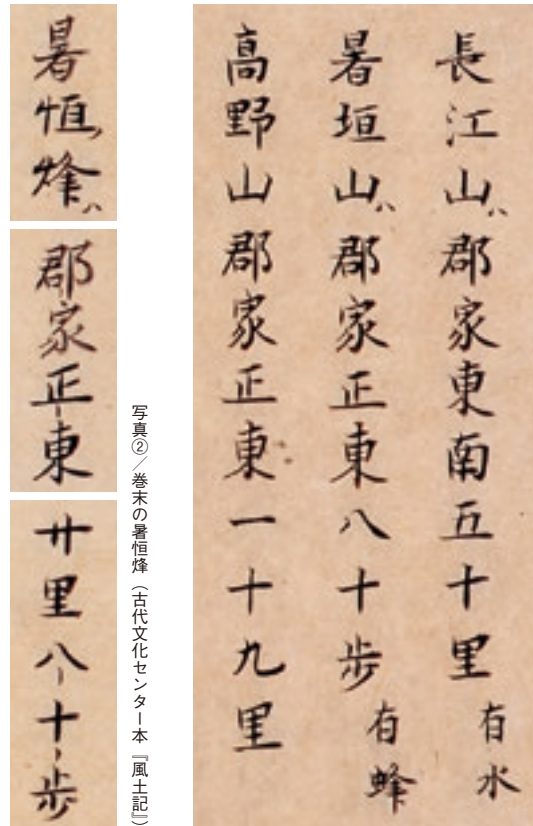 長江山ハ郡家東南五十里有水
暑垣山ハ郡家正東八十歩有蜂
高野山郡家正東一十九里
写真②／巻末の暑恒烽（古代文化センター本『風土記』）
暑恒ノ烽ハ
郡家正東
廿里八十歩